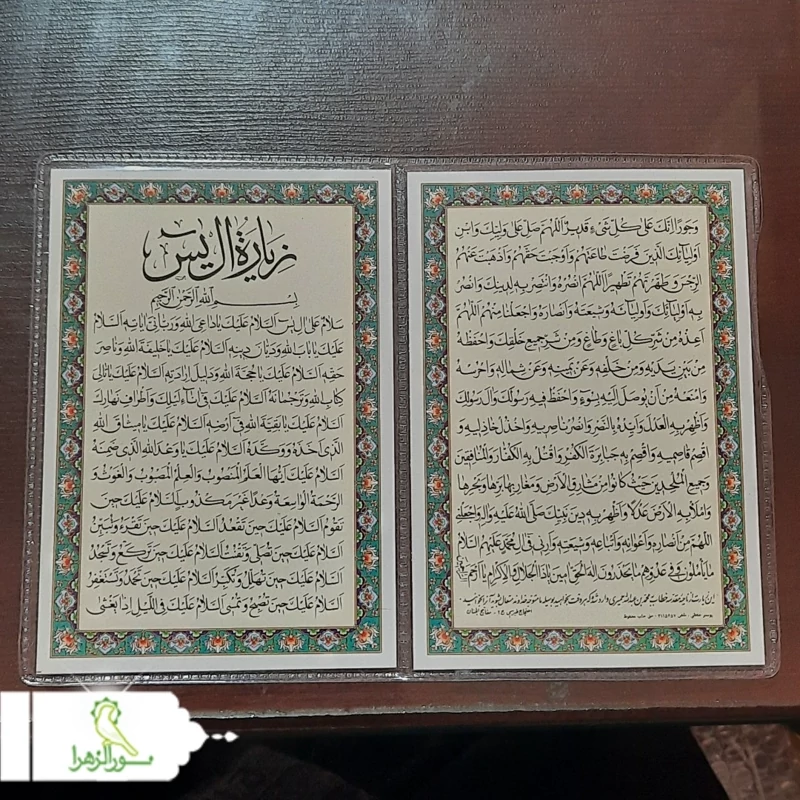 زیارة ال یس
بسم الله الرحمن الرحیم
سلام علی ال یس السلام علیک یا داعی الله وربانی ایاته السلام
علیک یا باب الله ودیان دینه السلام علیک یا خلیفة الله وناصر
حقه السلام علیک یا حجة الله ودلیل ارادته السلام علیک یا تالی
کتاب الله وترجمانه السلام علیک فی اناء لیلک واطراف نهارک
السلام علیک یا بقیة الله فی ارضه السلام علیک یا میثاق الله
الذی اخذه ووکده السلام علیک یا وعد الله الذی ضمنه
السلام علیک ایها العلم المنصوب والعلم المصبوب والغوث و
الرحمة الواسعة وعدا غیر مکذوب السلام علیک حین
تقوم السلام علیک حین تقعد السلام علیک حین تقرء وتبین
السلام علیک حین تصلی وتقنت السلام علیک حین ترکع وتسجد
السلام علیک حین تهلل وتکبر السلام علیک حین تحمد وتستغفر
السلام علیک حین تصبح وتمسی السلام علیک فی اللیل اذا یغشی
وجورا انک علی کل شیء قدیر اللهم صل علی ولیک وابن
اولیائک الذین فرضت طاعتهم واوجبت حقهم واذهبت عنهم
الرجس وطهرتهم تطهیرا اللهم انصره وانتصر به لدینک وانصر
به اولیائک واولیائه وشیعته وانصاره واجعلنا منهم اللهم
اعذه من شر کل باغ وطاغ ومن شر جمیع خلقک واحفظه
من بین یدیه ومن خلفه وعن یمینه وعن شماله واحرسه
وامنعه من ان یوصل الیه بسوء واحفظ فیه رسولک وال رسولک
واظهر به العدل وایده بالنصر وانصر ناصریه واخذل خاذلیه و
اقصم قاصمیه واقصم به جبابرة الکفر واقتل به الکفار والمنافقین
وجمیع الملحدین حیث کانوا من مشارق الارض ومغاربها برها وبحرها
واملأ به الارض عدلا واظهر به دین نبیک صلی الله علیه واله واجعلنی
اللهم من انصاره واعوانه واتباعه وشیعته وارنی فی ال محمد علیهم السلام
ما یأملون وفی عدوهم ما یحذرون اله الحق امین یا ذا الجلال والاکرام یا ارحم
نورالزهرا